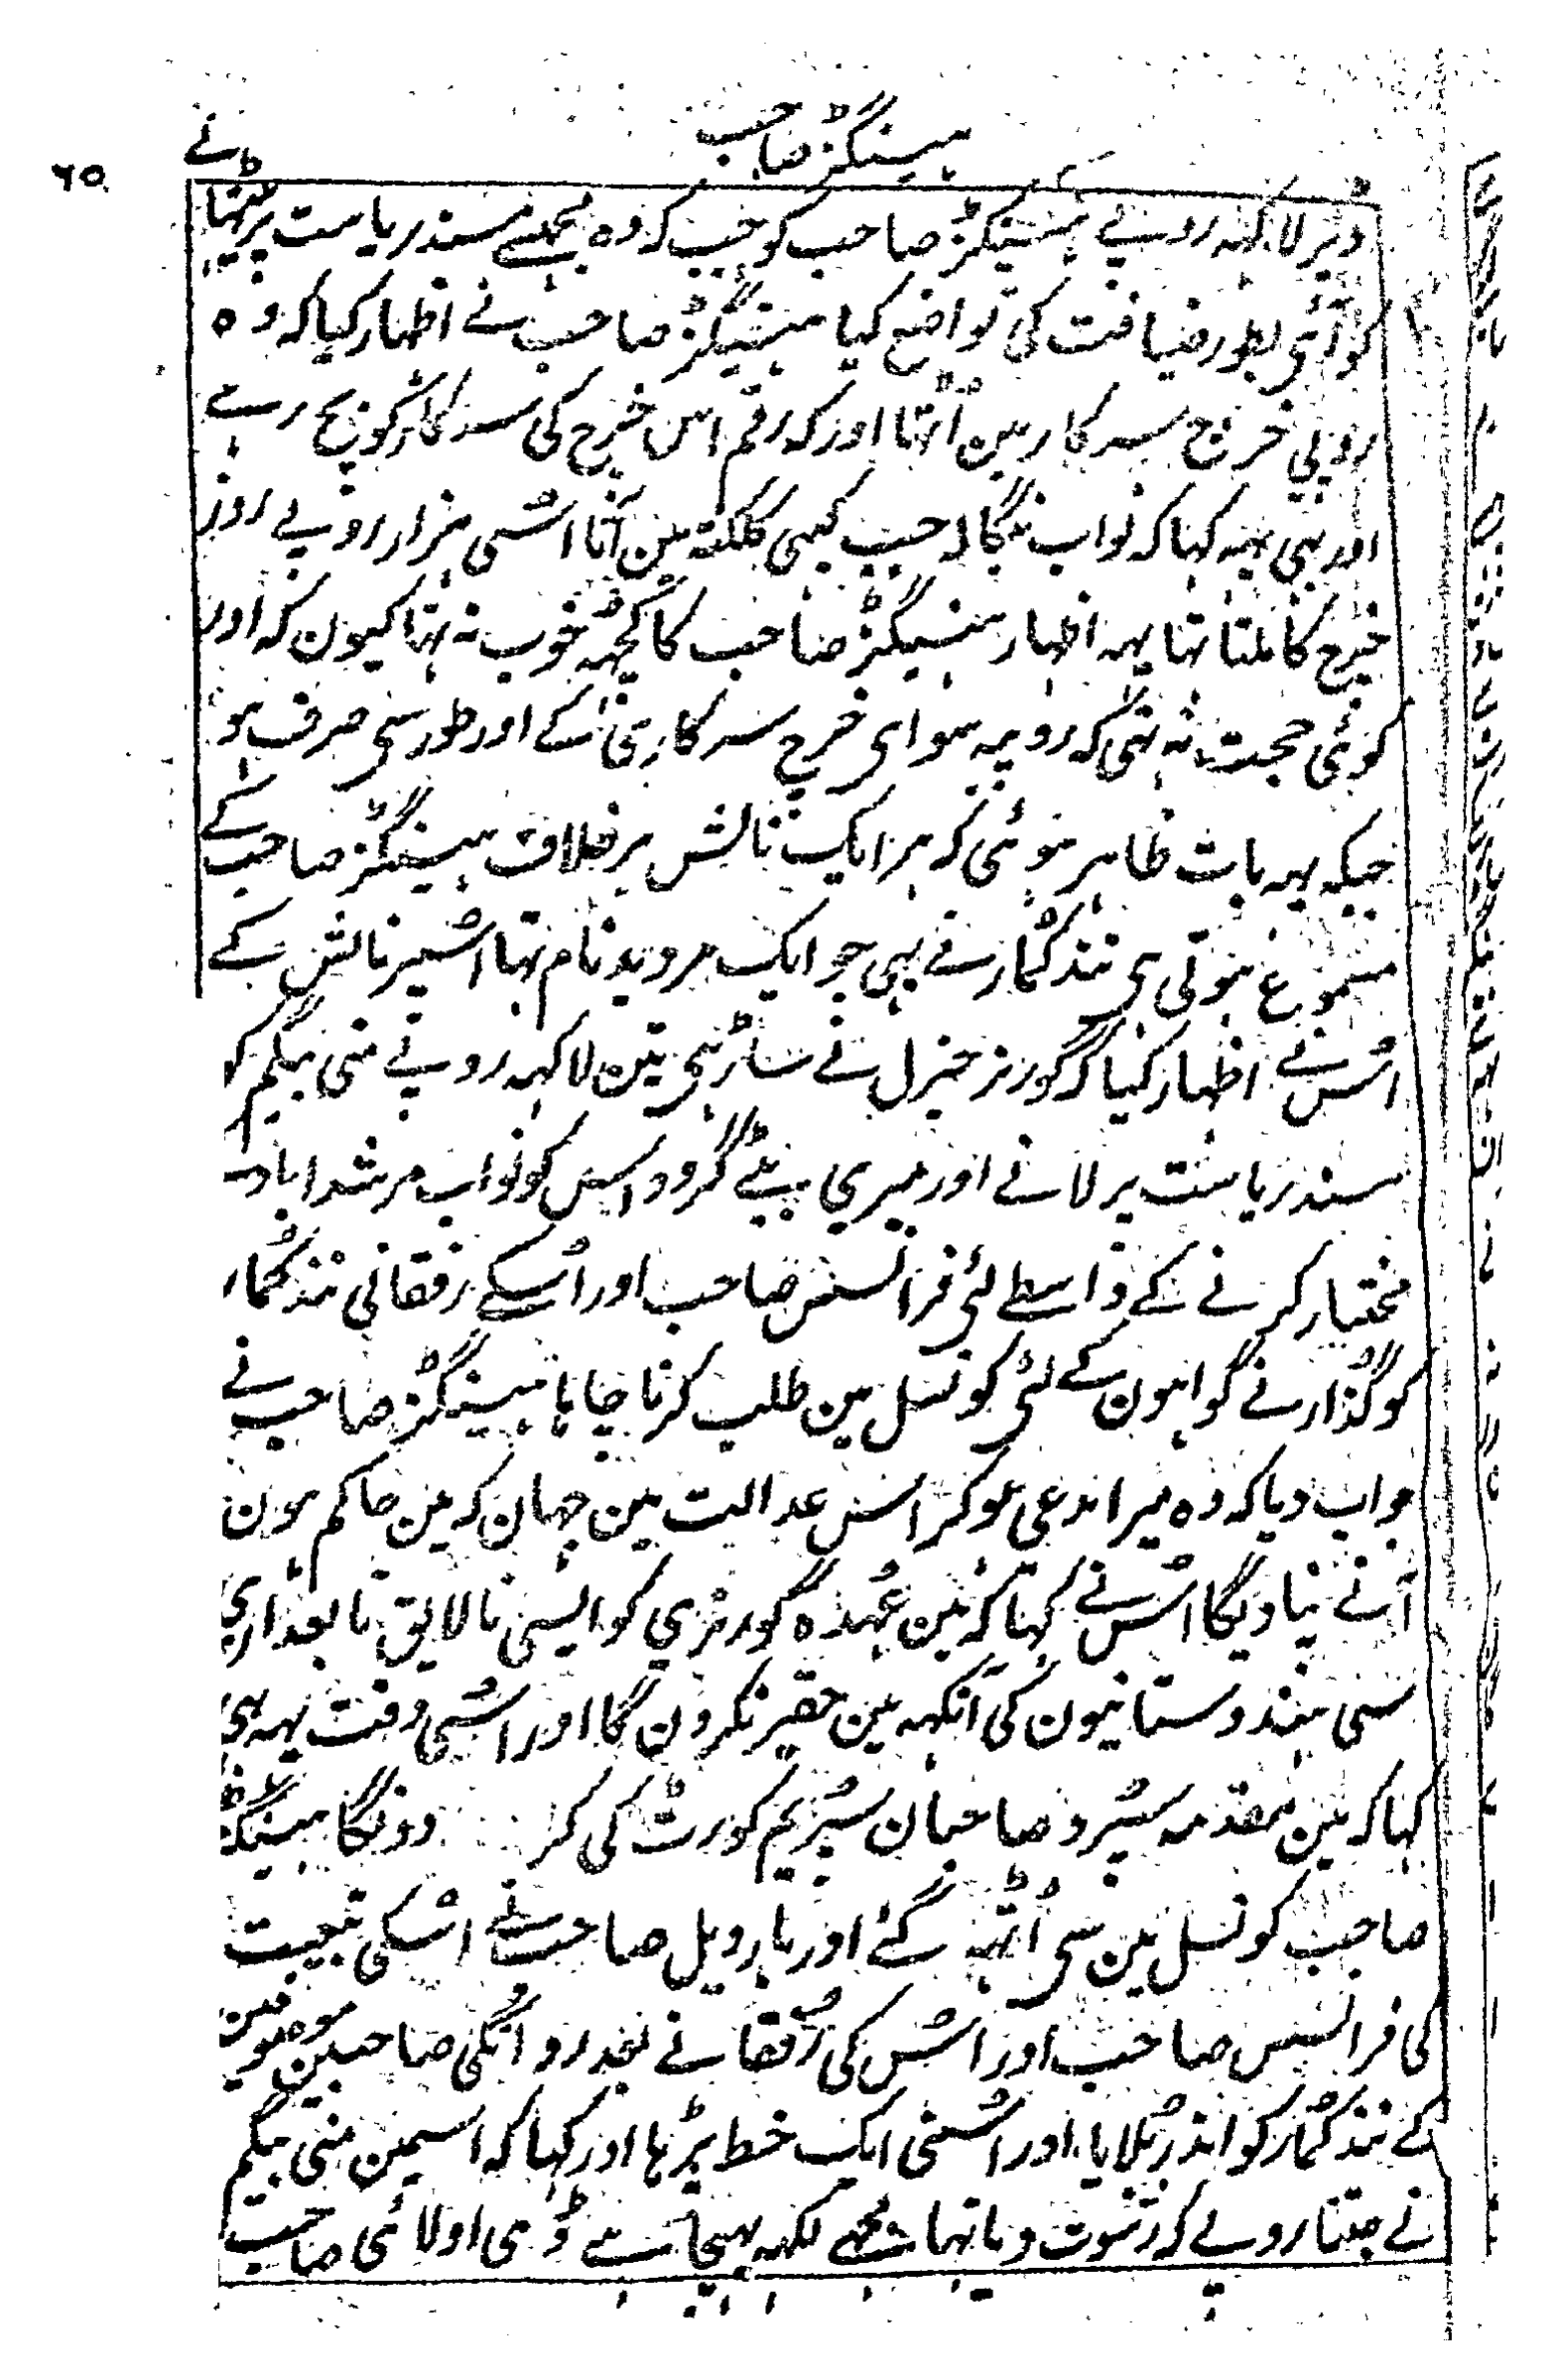 ہیسٹنگز صاحب
۶۵
ڈیڑ لاکہہ روپے ہیسٹنگز صاحب کو جب کہ وہ مجہے مسند ریاست پر بٹہانے
کو آئی بطور ضیافت کی تواضع کیا ہیسٹنگز صاحب نے اظہار کیا کہ وہ
روپی خرج سرکار مین اُٹہا اور کہ رقم اس خرج کی سرکار کو پہنچ رہے
اور بہی یہہ کہا کہ نواب بنگالہ جب کبہی کلکتہ مین آتا اسّی ہزار روپے روز
خرج کا ملتا تہا یہہ اظہار ہیسٹنگز صاحب کا کچہہ خوب نہ تہا کیون کہ اور
کوئی حجت نہ تہی کہ روپیہ سوای خرج سرکاری کے اور طور سی صرف ہو
جبکہ یہہ بات ظاہر ہوئی کہ ہر ایک نالش برخلاف ہیسٹنگز صاحب کے
مسموع ہوتی ہی نند کمار نے بہی جو ایک مرد بدنام تہا اسپر نالش کے
اُس نے اظہار کیا کہ گورنر جنرل نے ساڑہی تین لاکہہ روپے منی بیگم کو
مسند ریاست پر لانے اور میری بیٹے گرو داس کو نواب مرشداباد
مختیار کرنے کے واسطے لئی فرانسس صاحب اور اُسکے رفقانی نند کمار
کو گذارنے گواہون کے لئی کونسل مین طلب کرنا چاہا ہیسٹنگز صاحب نے
جواب دیا کہ وہ میرا مدعی ہو کر اس عدالت مین جہان کہ مین حاکم ہون
آنے نپاویگا اُس نے کہا کہ مین عُہدہ گورنری کو ایسی نالایق تابعداری
سی ہندوستانیون کی آنکہہ مین حقیر نکرون گا اور اُسی وقت یہہ بہی
کہا کہ مین مقدمہ سپرد صاحبان سپریم کورٹ کی کر دونگا ہیسٹنگز
صاحب کونسل مین سی اُٹہہ گئے اور بارویل صاحب نے اُسکی تبعیت
کی فرانسس صاحب اور اُس کی رُفقانے بعد روانگی صاحبین موصوفین
کے نند کمار کو اندر بُلایا اور اُسنی ایک خط پڑہا اور کہا کہ اسمین منی بیگم
نے جتنا روپے کہ رشوت دیا تہا مجہے لکہہ بہیجا ہے ڈی اولائی صاحب